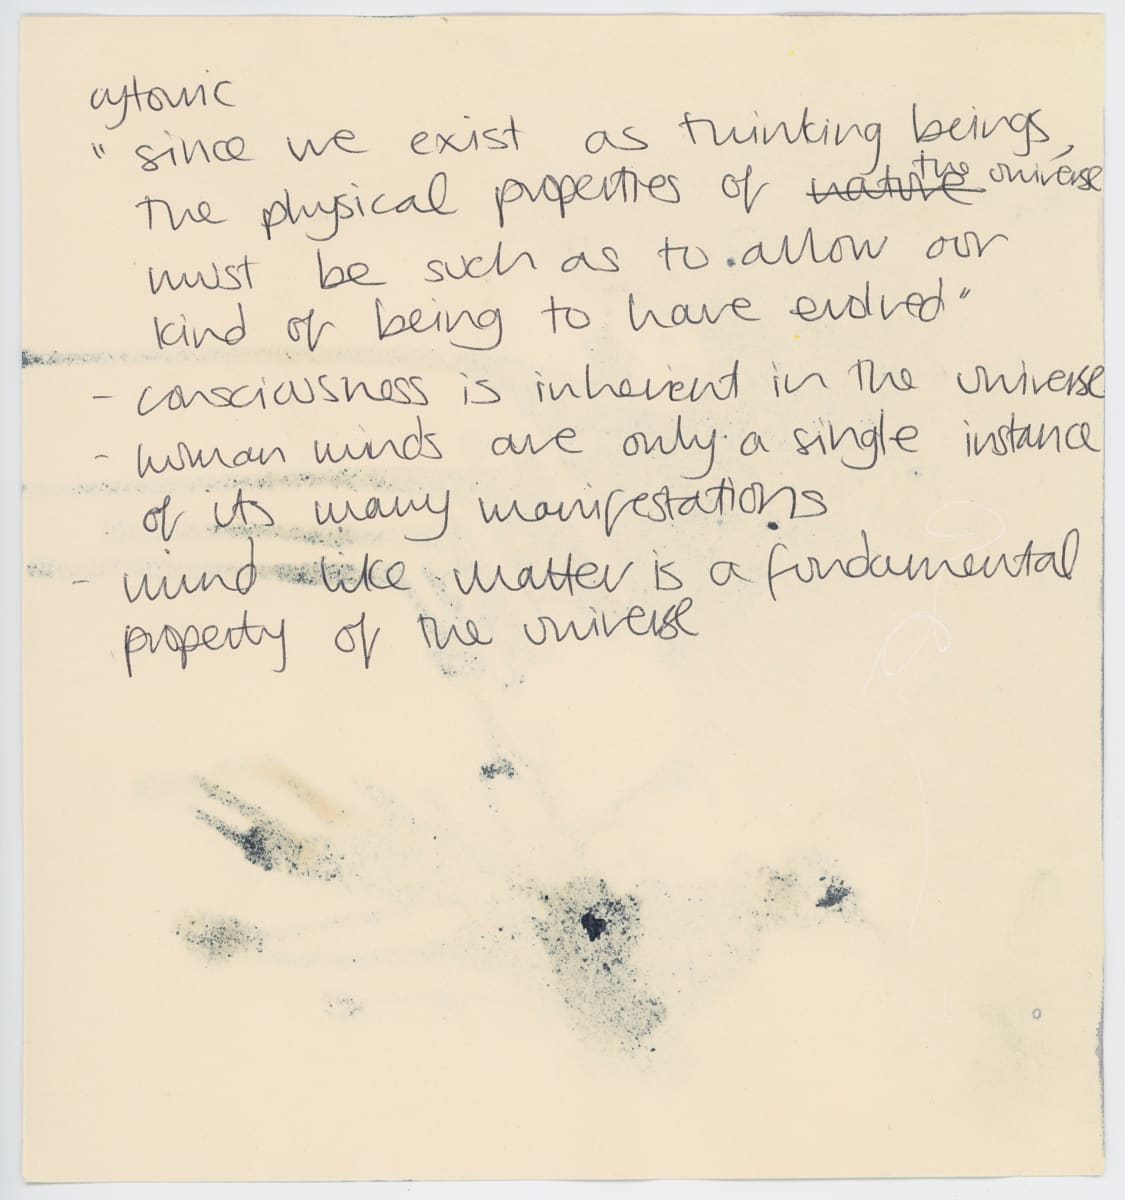 aytomic
" since we exist as thinking beings,
the physical properties of nature the universe
must be such as to allow our
kind of being to have evolved"
- consciousness is inherent in the universe
- human minds are only a single instance
of its many manifestations
- mind like matter is a fundamental
property of the universe